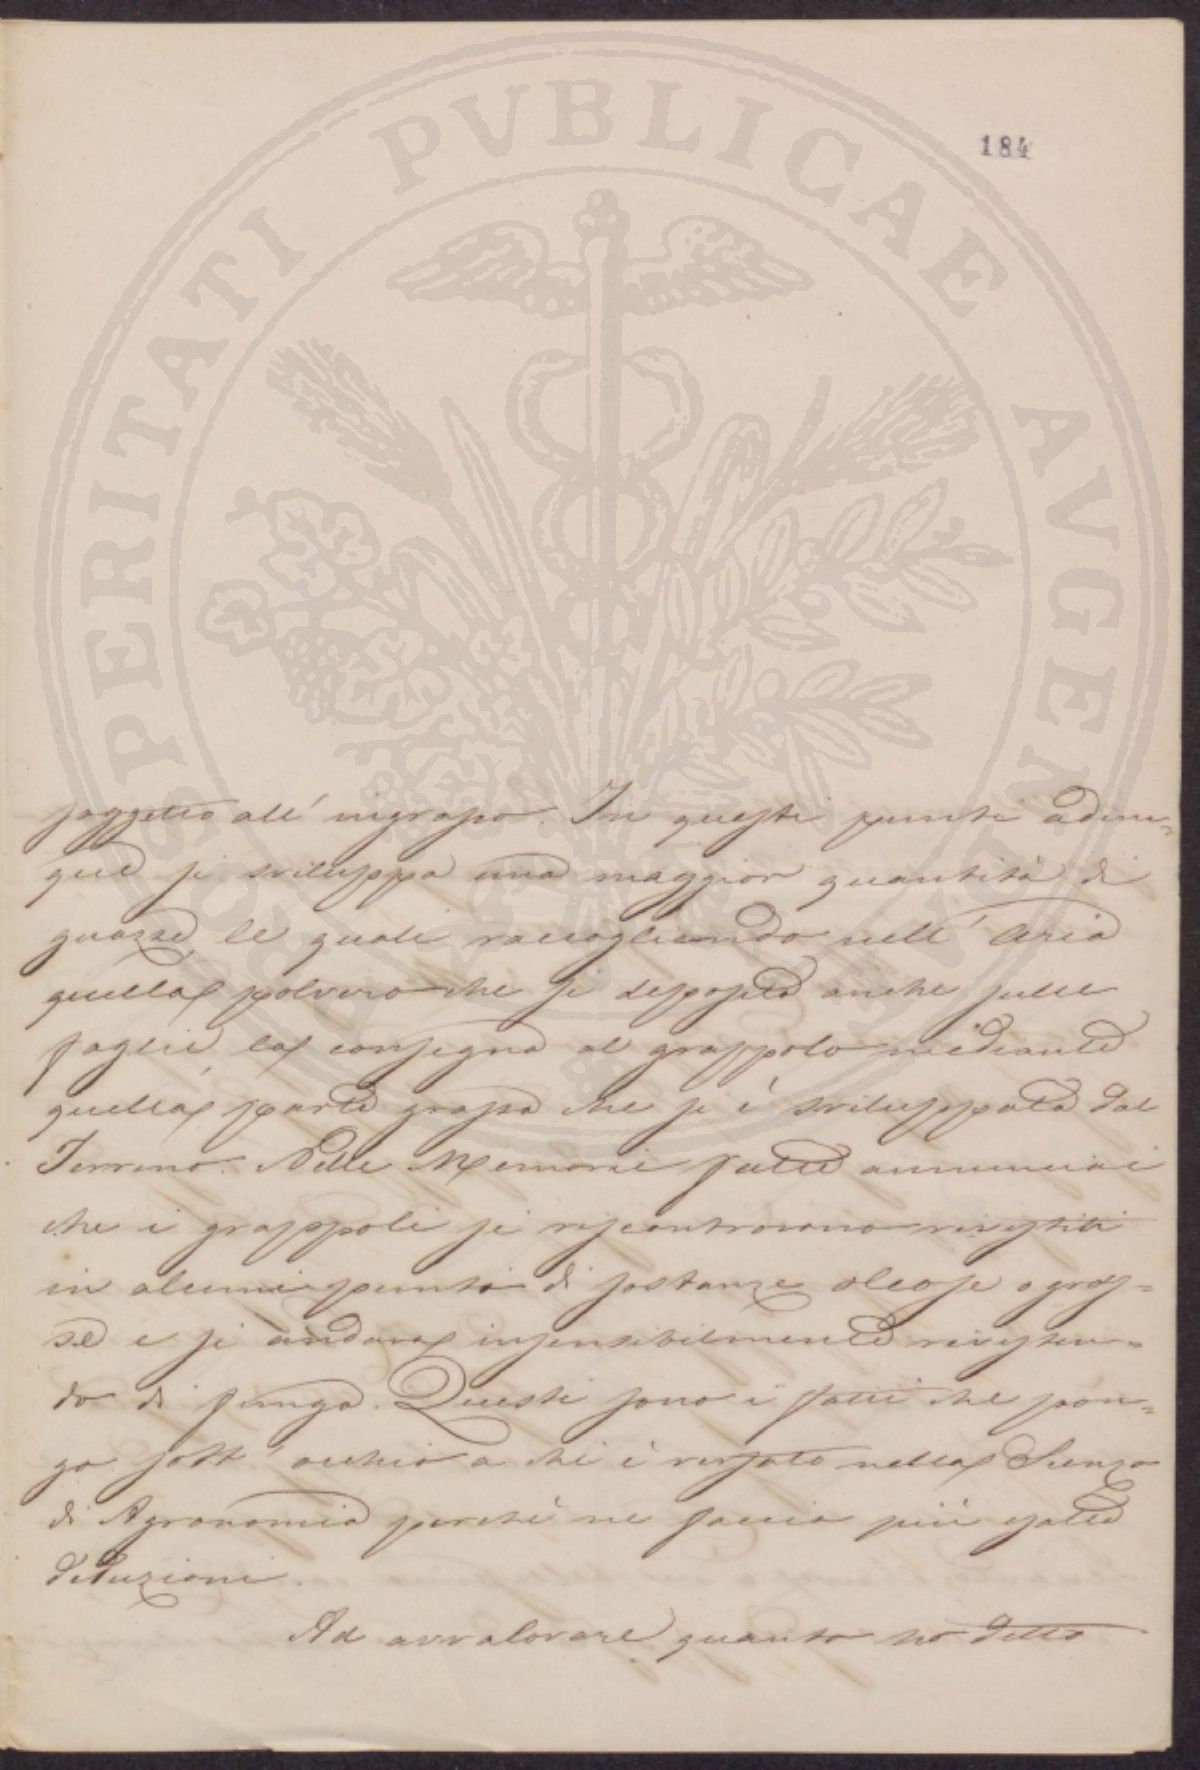 184
PROSPERITATI PVBLICAE AVGENDAE
soggetto all' ingrasso. In questi punti adun=
que si sviluppa una maggior quantità di
guazze, le quali raccogliendo nell' Aria
quella polvere che si deposita anche sulle
foglie la consegna al grappolo mediante
quella parte grassa che si è sviluppata dal
Terreno. Nelle Memorie fatte annunciai
che i grappoli si riscontravano rivestiti
in alcuni punti di sostanze oleose o gras=
se e si andava insensibilmente rivesten=
do di funga. Questi sono i fatti che pon=
go sott' occhio a chi è versato nella Scienza
di Agronomia perchè ne faccia più esatte
deduzioni.
Ad avvalorare quanto hò detto